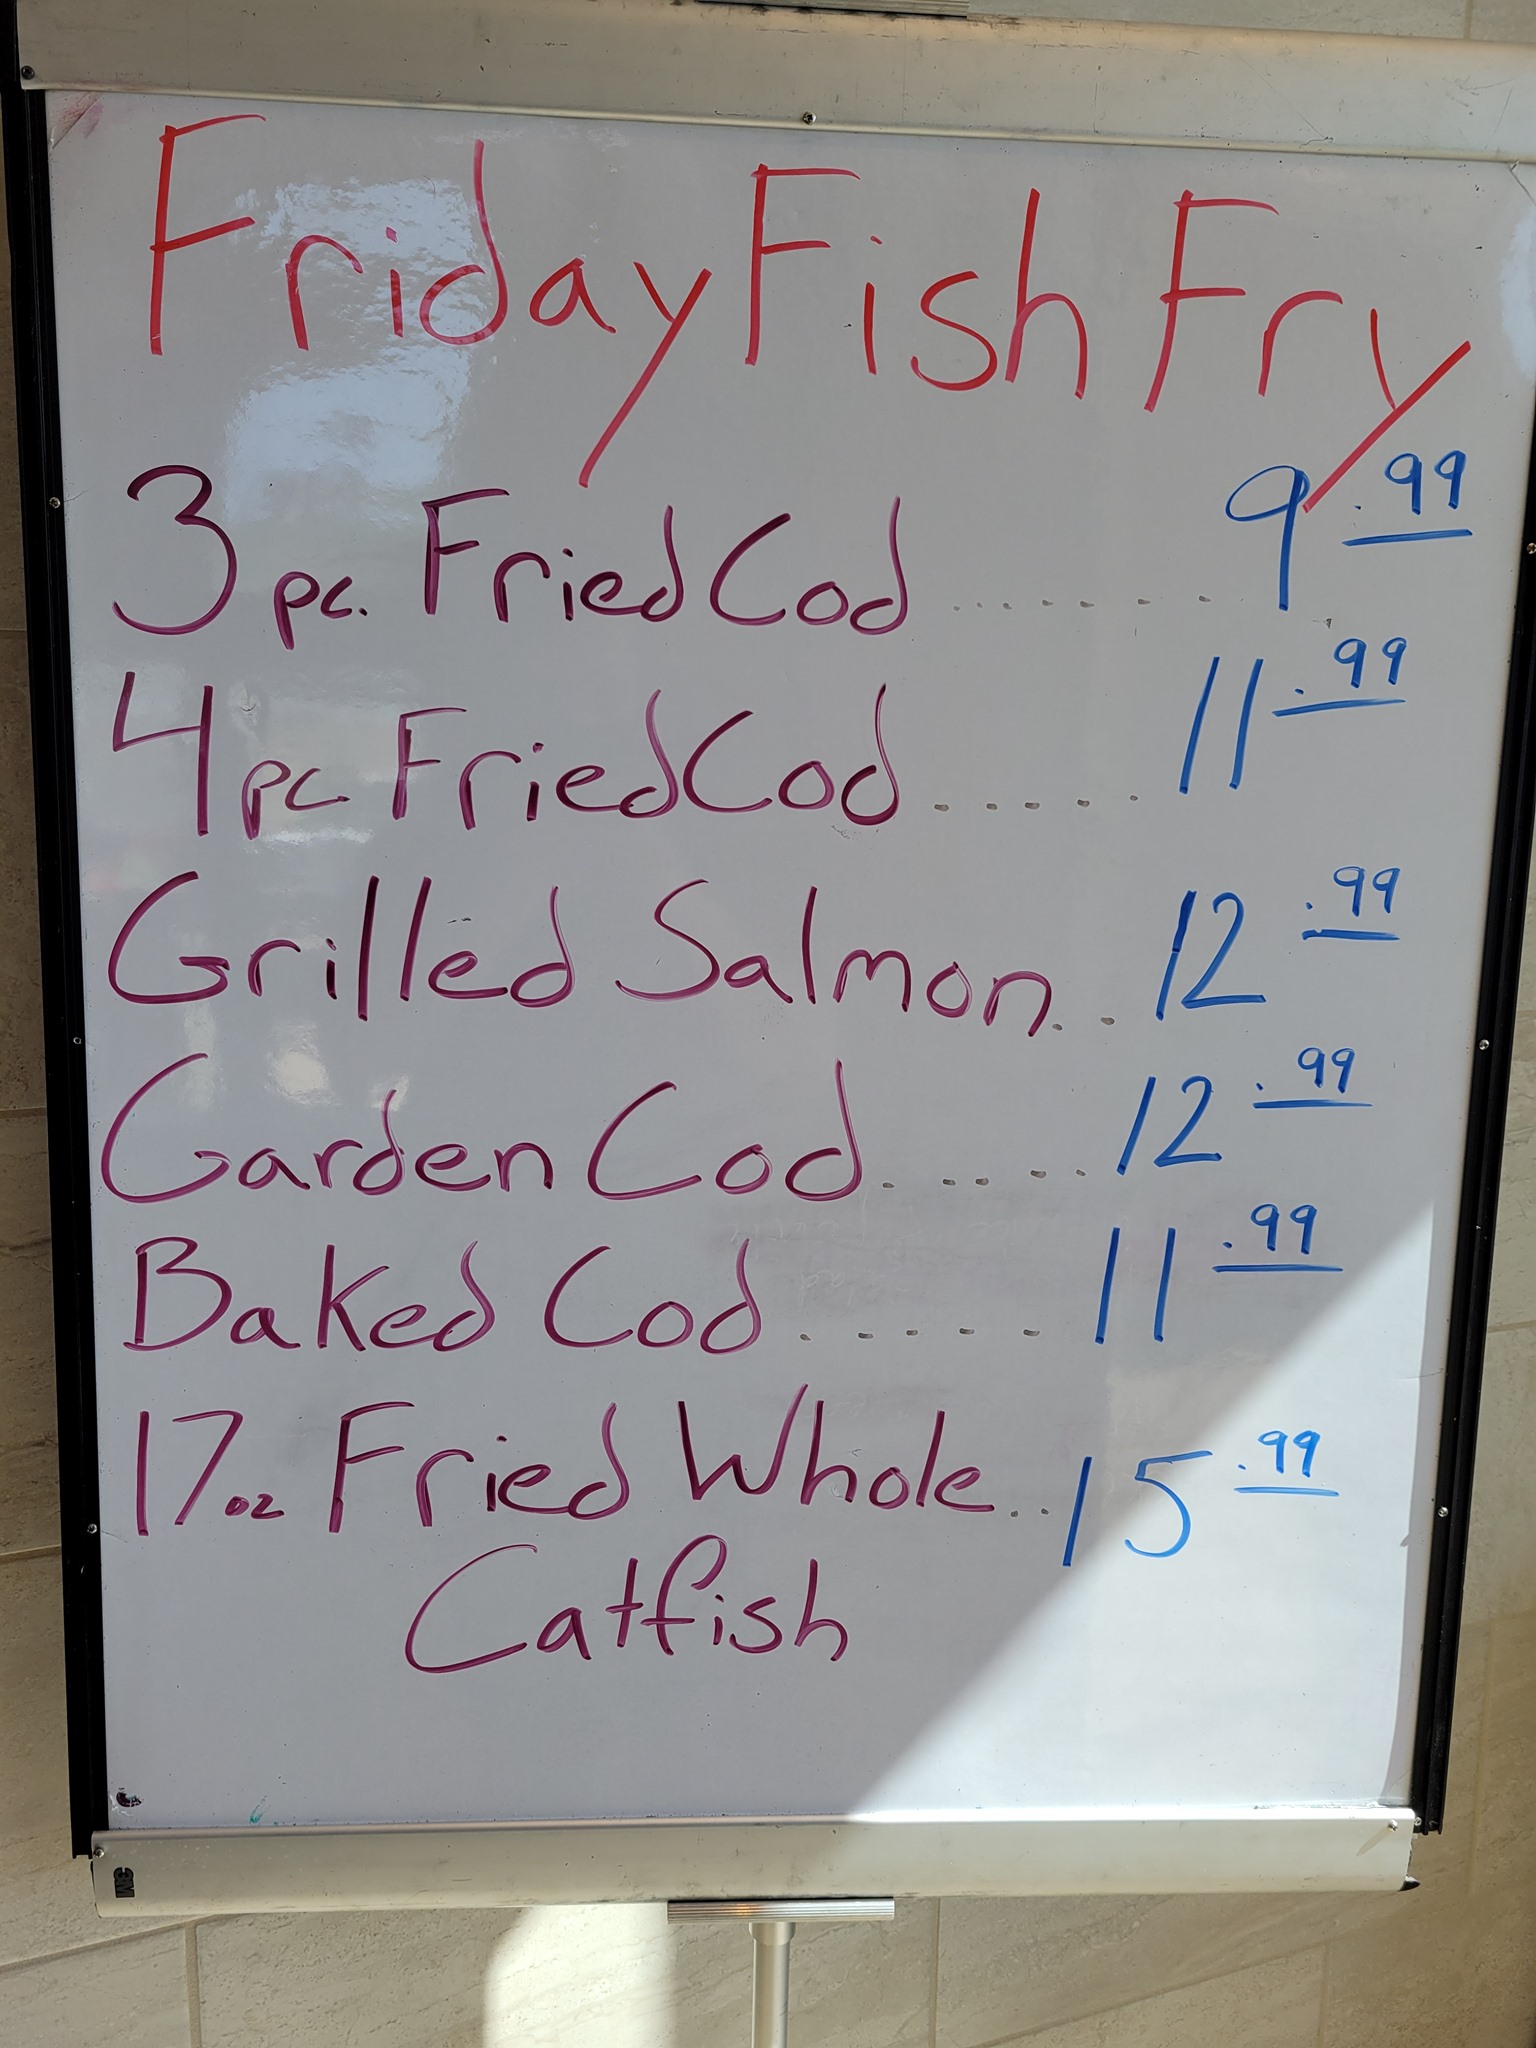 Friday Fish Fry
3 pc. Fried Cod ........ 9.99
4 pc. Fried Cod ..... 11.99
Grilled Salmon .. 12.99
Garden Cod ..... 12.99
Baked Cod ..... 11.99
17 oz Fried Whole .. 15.99
Catfish
3M